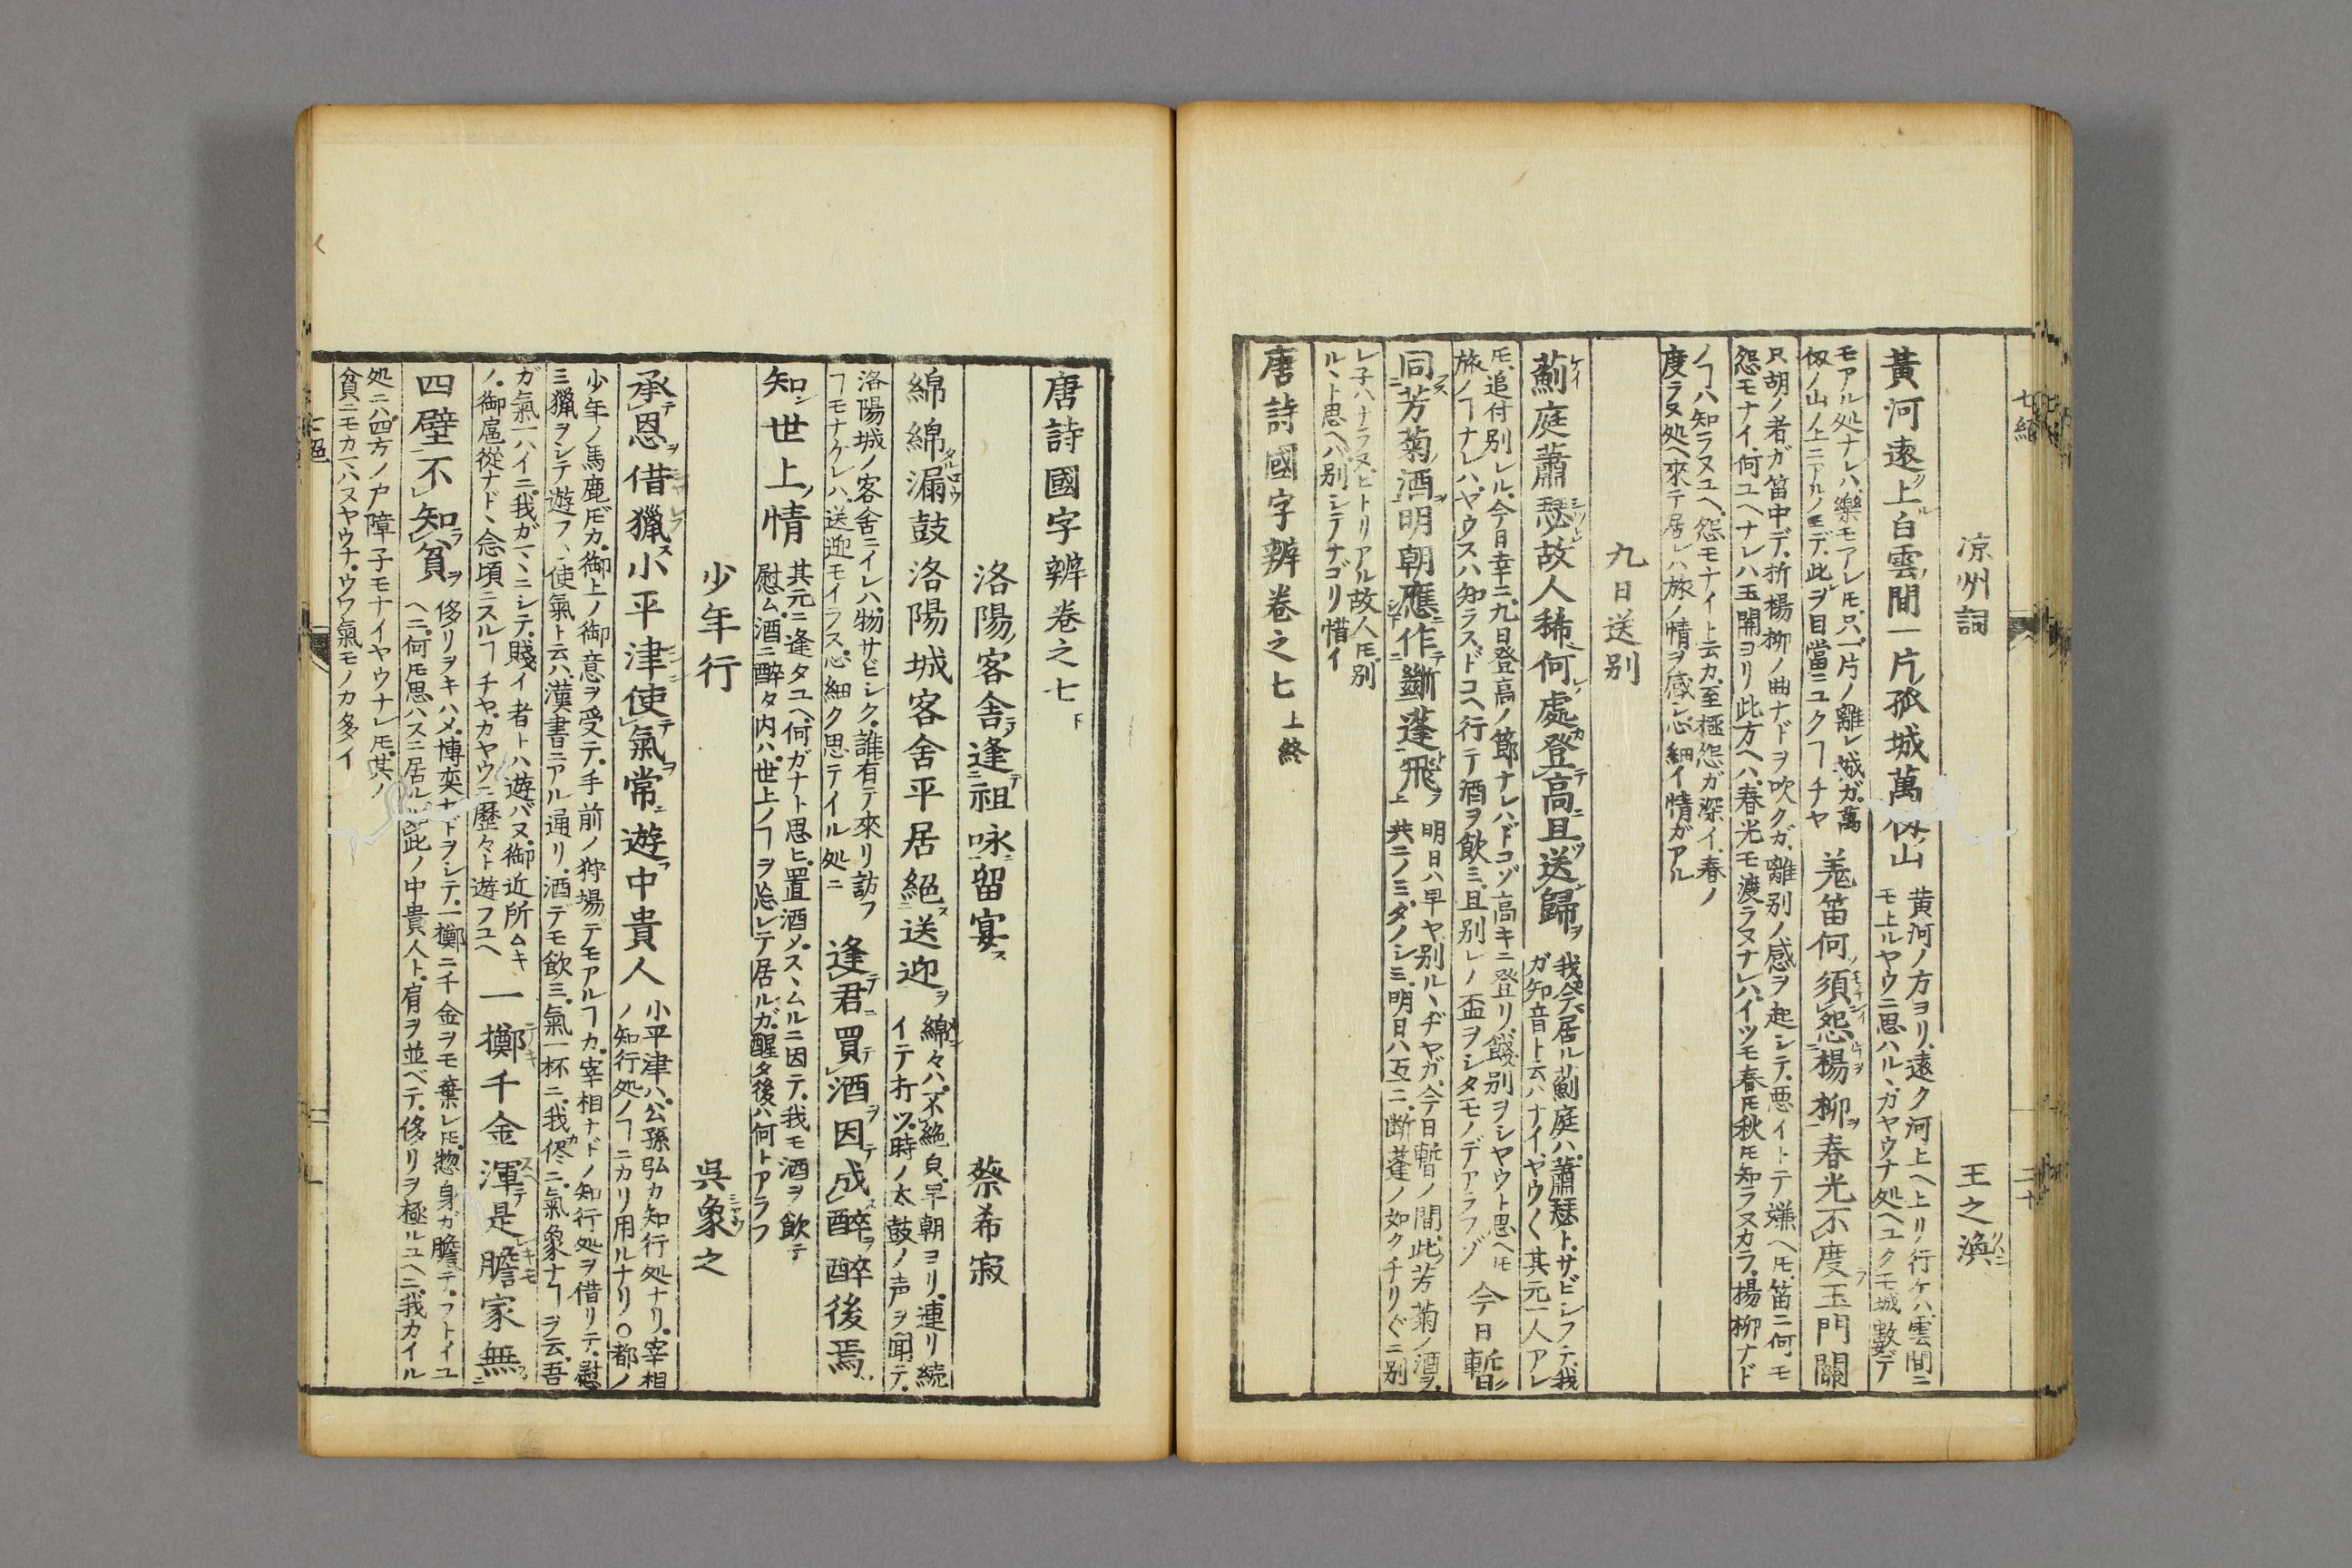 七絕
二十
涼州詞
王之渙
黃河遠上白雲間一片孤城萬仞山
黄河ノ方ヨリ遠ク河上ヘ上リ行ケハ雲間ニ
モ上ルヤウニ思ハルヽガヤウナ処ヘユクモ城數デ
モアル処ナレハ樂モアレ𪜈只一片ノ離レ城ガ萬
仞ノ山ノ上ニアルノミデ此ヲ目當ニユクヿチヤ
羗笛何須怨楊柳春光不度玉門關
只胡ノ者ガ笛中デ折楊柳ノ曲ナドヲ吹クガ離別ノ感ヲ起シテ悪イトテ嫌ヘ𪜈笛ニ何モ
怨モナイ何ユヘナレハ玉関ヨリ此方ヘハ春光モ渡ラヌナレハイツモ春𪜈秋𪜈知ラヌカラ楊柳ナド
ノヿハ知ラヌユヘ怨モナイト云カ至極怨ガ深イ春ノ
度ラヌ処ヘ來テ居レハ旅ノ情ヲ感シ心細イ情ガアル
九日送別
薊庭蕭瑟故人稀何處登高且送歸
我今居ル薊庭ハ蕭瑟トサビシフテ我
ガ知音ト云ハナイヤウ〱其元一人アレ
𪜈追付別レル今日幸ニ九日登高ノ節ナレハドコゾ高キニ登リ餞別ヲシヤウト思ヘ𪜈
旅ノヿナレハヤウスハ知ラズドコヘ行テ酒ヲ飲ミ且別レノ盃ヲシタモノデアラフゾ
今日暫
同芳菊酒明朝應作斷蓬飛
明日ハ早ヤ別ルヽヂヤガ今日暫ノ間此芳菊ノ酒ヲ
共ニノミタノシミ明日ハ互ニ断蓬ノ如クチリ〲ニ別
レ子ハナラヌヒトリアル故人𪜈別
ルヽト思ヘハ別シテナゴリ惜イ
唐詩國字辨卷之七上終
唐詩國字辨卷之七下
洛陽客舎逢祖咏留宴
蔡希寂
綿綿漏鼓洛陽城客舍平居絕送迎
綿々ハ不絶貞早朝ヨリ連リ続
イテ打ツ時ノ太鼓ノ声ヲ聞テ
洛陽城ノ客舍ニイレハ物サビシク誰有テ來リ訪フ
ヿモナケレハ送迎モイラス心細ク思テイル処ニ
逢君買酒因成醉醉後焉
知世上情
其元ニ逢タユヘ何ガナト思ヒ置酒メスヽムルニ因テ我モ酒ヲ飲テ
慰ム酒ニ醉タ内ハ世上ノヿヲ忘レテ居ルガ醒タ後ハ何トアラフ
少年行
呉象之
承恩借獵小平津使氣常遊中貴人
小平津ハ公孫弘カ知行処ナリ宰相
ノ知行処ノヿニカリ用ルナリ○都ノ
少年ノ馬鹿𪜈カ御上ノ御意ヲ受テ手前ノ狩場デモアルヿカ宰相ナドノ知行処ヲ借リテ慰
ミ獵ヲシテ遊フ使氣ト云ハ漢書ニアル通リ酒デモ飲ミ氣一杯ニ我侭ニ氣象ナヿヲ云吾
ガ氣一ハイニ我ガマヽニシテ賤イ者トハ遊バヌ御近所ムキ
ノ御扈從ナドヽ念頃ニスルヿチヤカヤウニ歴々ト遊フユヘ
一擲千金渾是膽家無
四壁不知貧
侈リヲキハメ博奕ナドヲシテ一擲ニ千金ヲモ棄レ𪜈惣身ガ膽テフトイユ
ヘニ何𪜈思ハスニ居ル此ノ中貴人ト肩ヲ並ベテ侈リヲ極ルユヘニ我カイル
処ニハ四方ノ戸障子モナイヤウナレ𪜈其ノ
貧ニモカマハヌヤウナウワ氣モノカ多イ
七絕